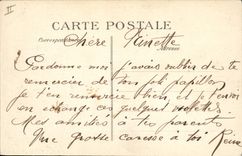 II
CARTE POSTALE
Correspondance Adresse
Chère Ninette
Pardonne moi j'avais oublié de te
remercier de ton joli papillon
je t'en remercie bien et je t'envoi
en échange ces quelques violettes
Mes amitiés à tes parents
Une grosse caresse à toi Reine